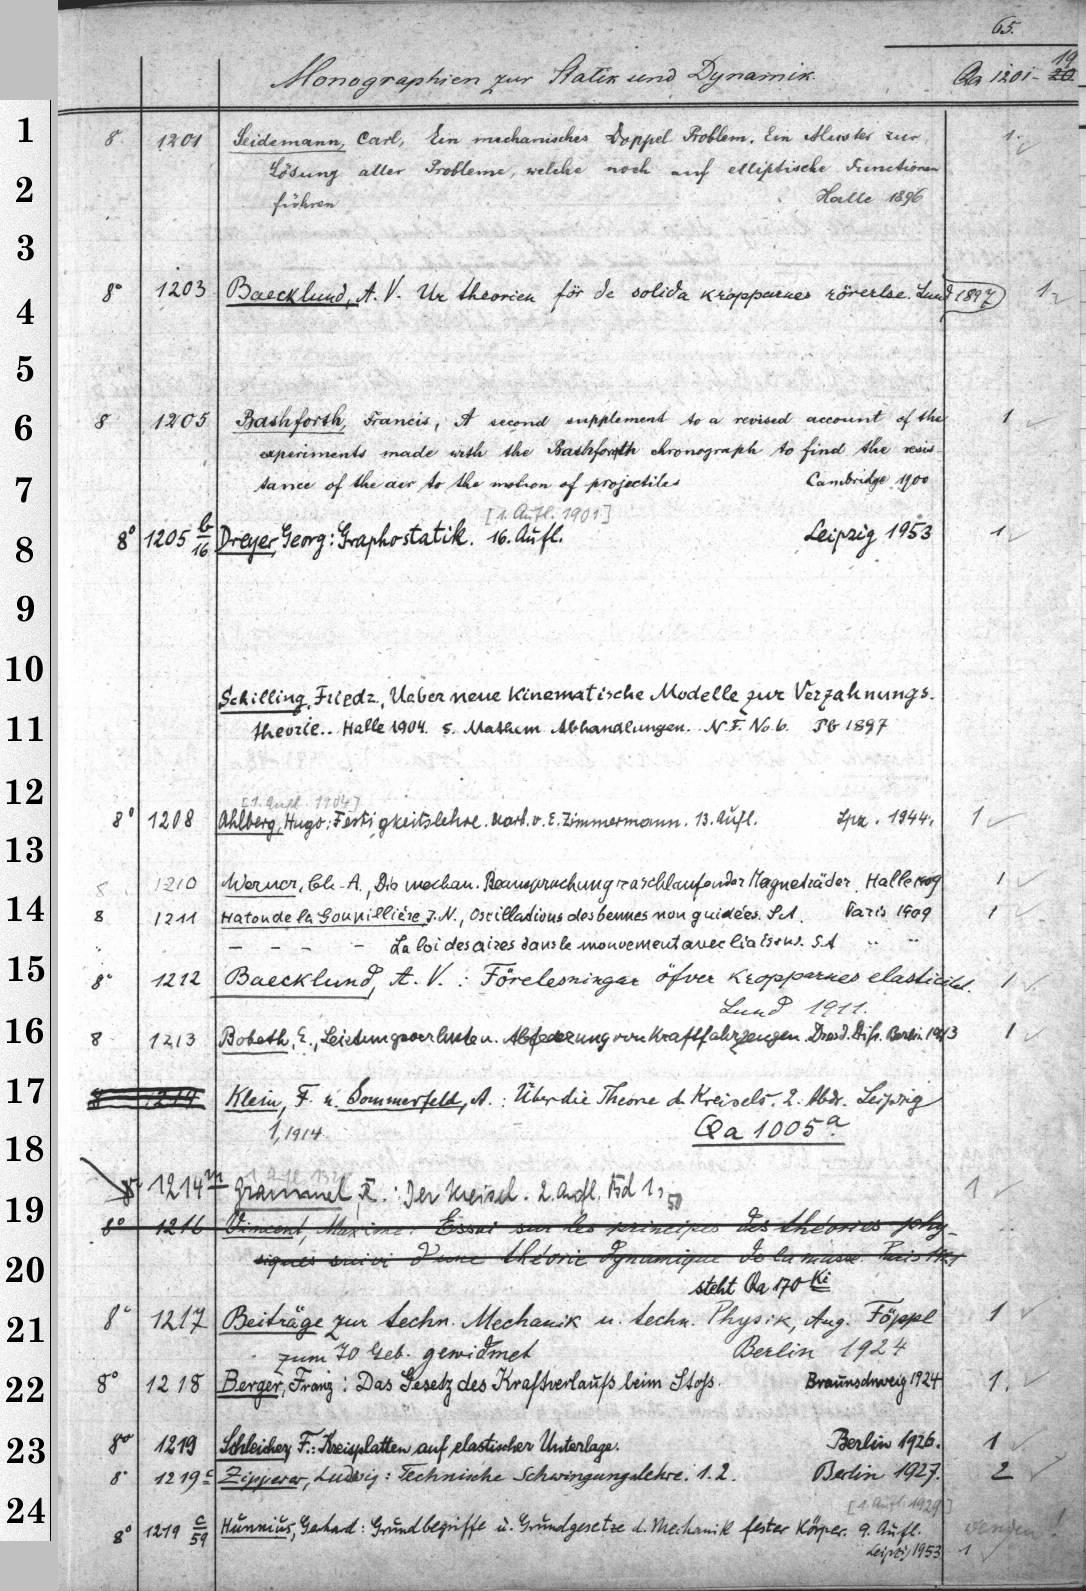 65.
Monographien zur Statik und Dynamik. Qa 1201-19
1
8 1201 Seidemann, Carl, Ein mechanisches Doppel Problem. Ein Muster zur 1.
2 Lösung aller Probleme, welche noch auf elliptische Functionen
führen Halle 1896
3
8° 1203 Baecklund, A. V. Ur theorien för de solida kropparnes rörerlse. Lund 1897 1
4
5
6 8 1205 Bashforth, Francis, A second supplement to a revised account of the 1
experiments made with the Bashforth chronograph to find the resis-
7 tance of the air to the motion of projectiles Cambridge 1900
[1. Aufl. 1901]
8 8° 1205 b/16 Dreyer, Georg: Graphostatik. 16. Aufl. Leipzig 1953 1
9
10
Schilling, Friedr., Ueber neue kinematische Modelle zur Verzahnungs-
11 theorie.. Halle 1904. s. Mathem Abhandlungen. N. F. No. 6. 1897
12
[1. Aufl. 1904]
8° 1208 Ahlberg, Hugo: Festigkeitslehre. v. E. Zimmermann. 13. Aufl. Lpz. 1944. 1
13
8 1210 Werner, Ch. A., Die mechan. Beanspruchung raschlaufender Magneträder. Halle 1
14 8 1211 Haton de la Goupillière, J. N., Oscillations des bennes non guidées. S.A. Paris 1909 1
" – – – – La loi des aires dans le mouvement avec liaisons. S.A " "
15 8° 1212 Baecklund, A. V. : Förelesningar öfver kropparnes elasticitet. 1
Lund 1911.
16 8 1213 Bobeth, E., Leistungsverluste u. Abfederung von Kraftfahrzeugen. Dresd. Diss. Berlin 1913 1
17 8 1214 Klein, F. u. Sommerfeld, A. : Über die Theorie d. Kreisels. 2. Abdr. Leipzig
1, 1914. Qa 1005 a
18
19 8° 1214 m Grammel, R. : Der Kreisel. 2. Aufl. Bd 1, 50 1
8° 1216 Vincent, Maxime. Essai sur les principes des théories phy-
20 siques suivi d'une théorie dynamique de la masse. Paris
steht Qa 170 Ki
21 8° 1217 Beiträge zur techn. Mechanik u. techn. Physik, Aug. Föppl 1
zum 70 Geb. gewidmet Berlin 1924
22 8° 1218 Berger, Franz: Das Gesetz des Kraftverlaufs beim Stoß. Braunschweig 1924 1.
23 8° 1219 Schleicher, F.: Kreisplatten auf elastischer Unterlage. Berlin 1926. 1
8° 1219 c Zipperer, Ludwig: Technische Schwingungslehre. 1. 2. Berlin 1927. 2
[1. Aufl. 1929]
24 8° 1219 c/59 Hunnius, Gerhard: Grundbegriffe u. Grundgesetze d. Mechanik fester Körper. 9. Aufl.
Leipzig 1953 1